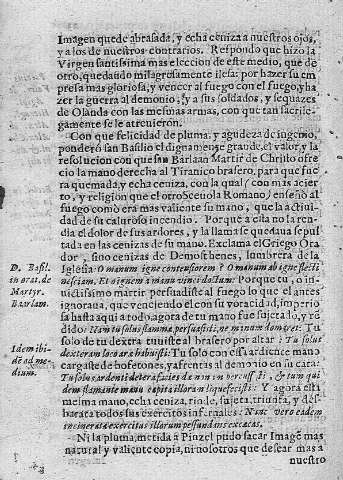 Imagen quede abrasada, y echa ceniza a nuestros ojos,
y a los de nuestros contrarios. Respondo que hizo la
Virgen santissima mas eleccion de este medio, que de
otro, quedando milagrosamente ilesa: por hazer su em
presa mas gloriosa, y vencer al fuego con el fuego, y ha
zer la guerra al demonio, y a sus soldados, y sequazes
de Olanda con las mesmas armas, con que tan sacrile-
gamente se le atrevieron.
Con que felicidad de pluma, y agudeza de ingenio,
ponderò san Basilio el dignamente grande, el valor, y la
resolucion con que san Barlaan Martir de Christo ofre
cio la mano derecha al Tiranico brasero, para que fue
ra quemada, y echa ceniza, con la qual (con mas acier
to, y religion que el otro Scevola Romano) enseñò al
fuego como era mas valiente su mano, que la actiui
dad de su caluroso incendio. Porque a ella no la ren-
dia el dolor de sus ardores, y la llama se quedava sepul
tada en las cenizas de su mano. Exclama el Griego Ora
dor, sino cenizas de Demosthenes, lumbrera de la
D. Basil.
in orat. de
Martyr.
Barlam.
Iglesia: O manum igne contentiorem? O manum ab igne flecti
nesciam. Et ignem a manu vinci doctum. Porque tu, o in-
victissimo martir persuadiste al fuego lo que el antes
ignorava, que venciendo el con su voracidad, imperio
sa hasta aqui a todo, agora de tu mano fue sujeta lo, y ré
dido: Nam tu solus flammæ persuasisti, ne manum domaret: Tu
solo de tu dextra tuviste al brasero por altar:
Idem ibi-
dẽ ad me-
dium.
Tu solus
dexteram loco aræ habuisti: Tu solo con esta ardiente mano
cargaste de bofetones, y afrentas al demonio en su cara:
Tu solus ardenti dextera facies dæmonum percussisti, & tum qui
dem flamante manu capita illorum liquefecisti: Y agora esta
mesma mano, echa ceniza, rinde, sujeta, triunfa, y des-
barata todos sus exercitos infernales: Nunc vero eadem
incinerata exercitus illorum pessundans excæcas.
Ni la pluma, metida a Pinzel pudo sacar Imagẽ mas
natural y valiente copia, ni nosotros que desear mas a
nuestro